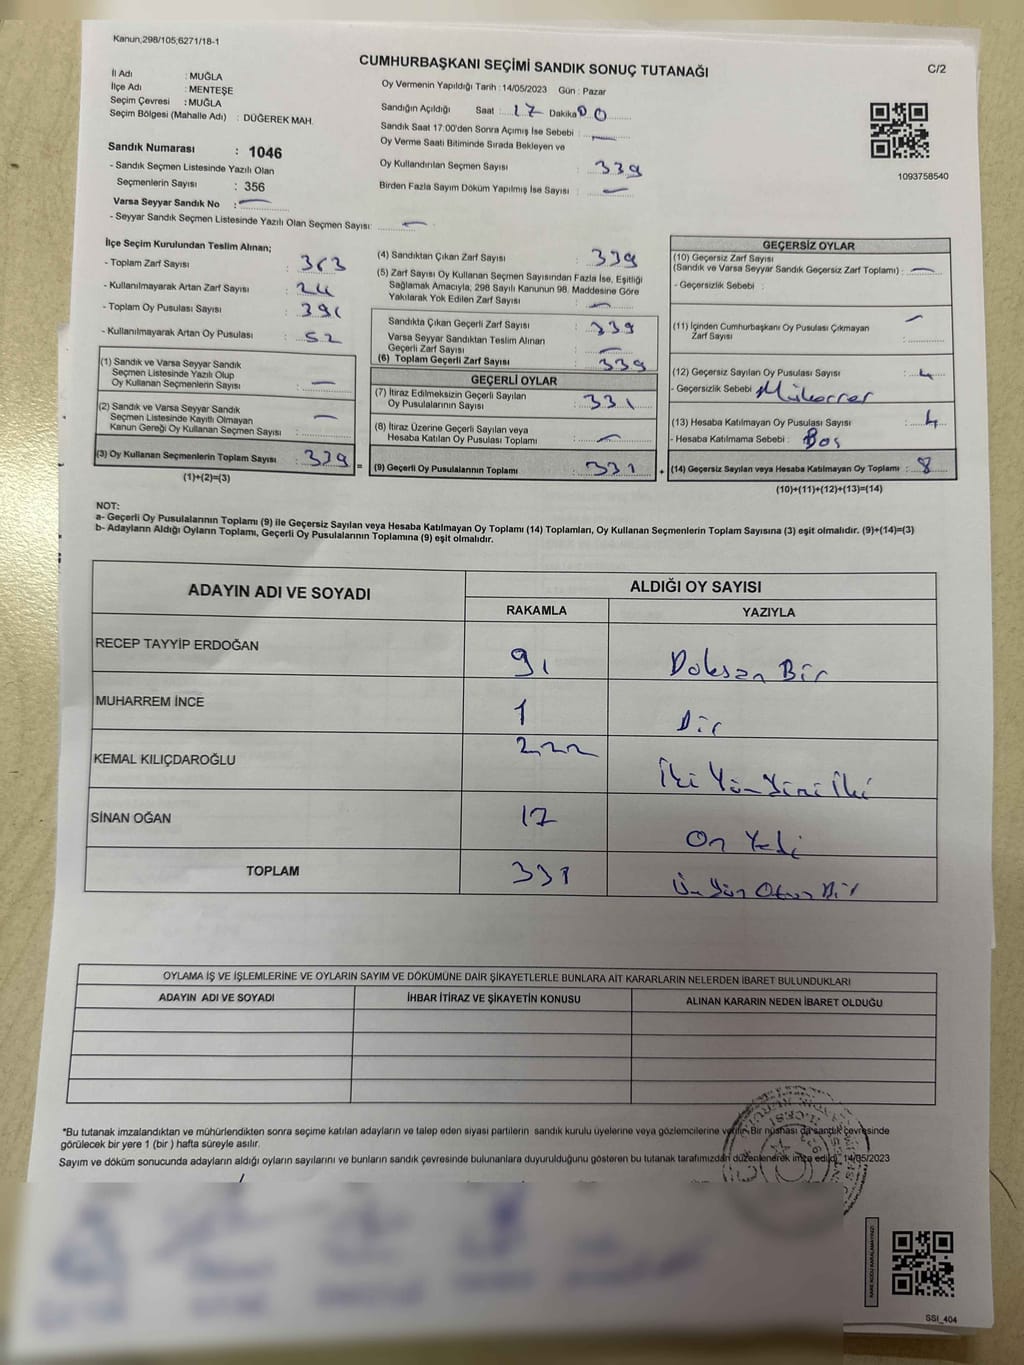 Kanun;298/105,6271/18-1
CUMHURBAŞKANI SEÇİMİ SANDIK SONUÇ TUTANAĞI
C/2
İl Adı : MUĞLA
İlçe Adı : MENTEŞE
Seçim Çevresi : MUĞLA
Seçim Bölgesi (Mahalle Adı) : DÜĞEREK MAH.
Sandık Numarası : 1046
- Sandık Seçmen Listesinde Yazılı Olan
Seçmenlerin Sayısı : 356
Varsa Seyyar Sandık No : —
- Seyyar Sandık Seçmen Listesinde Yazılı Olan Seçmen Sayısı: —
Oy Vermenin Yapıldığı Tarih : 14/05/2023 Gün : Pazar
Sandığın Açıldığı Saat : 17 Dakika 00
Sandık Saat 17:00'den Sonra Açımış İse Sebebi : —
Oy Verme Saati Bitiminde Sırada Bekleyen ve
Oy Kullandırılan Seçmen Sayısı : 339
Birden Fazla Sayım Döküm Yapılmış İse Sayısı : —
1093758540
İlçe Seçim Kurulundan Teslim Alınan;
- Toplam Zarf Sayısı : 363
- Kullanılmayarak Artan Zarf Sayısı : 24
- Toplam Oy Pusulası Sayısı : 391
- Kullanılmayarak Artan Oy Pusulası : 52
(1) Sandık ve Varsa Seyyar Sandık
Seçmen Listesinde Yazılı Olup
Oy Kullanan Seçmenlerin Sayısı : —
(2) Sandık ve Varsa Seyyar Sandık
Seçmen Listesinde Kayıtlı Olmayan
Kanun Gereği Oy Kullanan Seçmen Sayısı : —
(3) Oy Kullanan Seçmenlerin Toplam Sayısı : 339
(1)+(2)=(3)
(4) Sandıktan Çıkan Zarf Sayısı : 339
(5) Zarf Sayısı Oy Kullanan Seçmen Sayısından Fazla İse, Eşitliği
Sağlamak Amacıyla, 298 Sayılı Kanunun 98. Maddesine Göre
Yakılarak Yok Edilen Zarf Sayısı : —
Sandıkta Çıkan Geçerli Zarf Sayısı : 339
Varsa Seyyar Sandıktan Teslim Alınan
Geçerli Zarf Sayısı : —
(6) Toplam Geçerli Zarf Sayısı : 339
GEÇERLİ OYLAR
(7) İtiraz Edilmeksizin Geçerli Sayılan
Oy Pusulalarının Sayısı : 331
(8) İtiraz Üzerine Geçerli Sayılan veya
Hesaba Katılan Oy Pusulası Toplamı : —
= (9) Geçerli Oy Pusulalarının Toplamı : 331 +
GEÇERSİZ OYLAR
(10) Geçersiz Zarf Sayısı
(Sandık ve Varsa Seyyar Sandık Geçersiz Zarf Toplamı) : —
- Geçersizlik Sebebi :
(11) İçinden Cumhurbaşkanı Oy Pusulası Çıkmayan
Zarf Sayısı : —
(12) Geçersiz Sayılan Oy Pusulası Sayısı : 4
- Geçersizlik Sebebi : Mükerrer
(13) Hesaba Katılmayan Oy Pusulası Sayısı : 4
- Hesaba Katılmama Sebebi : Boş
(14) Geçersiz Sayılan veya Hesaba Katılmayan Oy Toplamı : 8
(10)+(11)+(12)+(13)=(14)
NOT:
a- Geçerli Oy Pusulalarının Toplamı (9) ile Geçersiz Sayılan veya Hesaba Katılmayan Oy Toplamı (14) Toplamları, Oy Kullanan Seçmenlerin Toplam Sayısına (3) eşit olmalıdır. (9)+(14)=(3)
b- Adayların Aldığı Oyların Toplamı, Geçerli Oy Pusulalarının Toplamına (9) eşit olmalıdır.
ADAYIN ADI VE SOYADI ALDIĞI OY SAYISI
RAKAMLA YAZIYLA
RECEP TAYYİP ERDOĞAN 91 Doksan Bir
MUHARREM İNCE 1 Bir
KEMAL KILIÇDAROĞLU 222 İki Yüz Yirmi İki
SİNAN OĞAN 17 On Yedi
TOPLAM 331 Üç Yüz Otuz Bir
OYLAMA İŞ VE İŞLEMLERİNE VE OYLARIN SAYIM VE DÖKÜMÜNE DAİR ŞİKAYETLERLE BUNLARA AİT KARARLARIN NELERDEN İBARET BULUNDUKLARI
ADAYIN ADI VE SOYADI İHBAR İTİRAZ VE ŞİKAYETİN KONUSU ALINAN KARARIN NEDEN İBARET OLDUĞU
*Bu tutanak imzalandıktan ve mühürlendikten sonra seçime katılan adayların ve talep eden siyasi partilerin sandık kurulu üyelerine veya gözlemcilerine verilir. Bir nüshası da sandık çevresinde
görülecek bir yere 1 (bir ) hafta süreyle asılır.
Sayım ve döküm sonucunda adayların aldığı oyların sayılarını ve bunların sandık çevresinde bulunanlara duyurulduğunu gösteren bu tutanak tarafımızdan düzenlenerek imza edildi. 14/05/2023
SSI_404